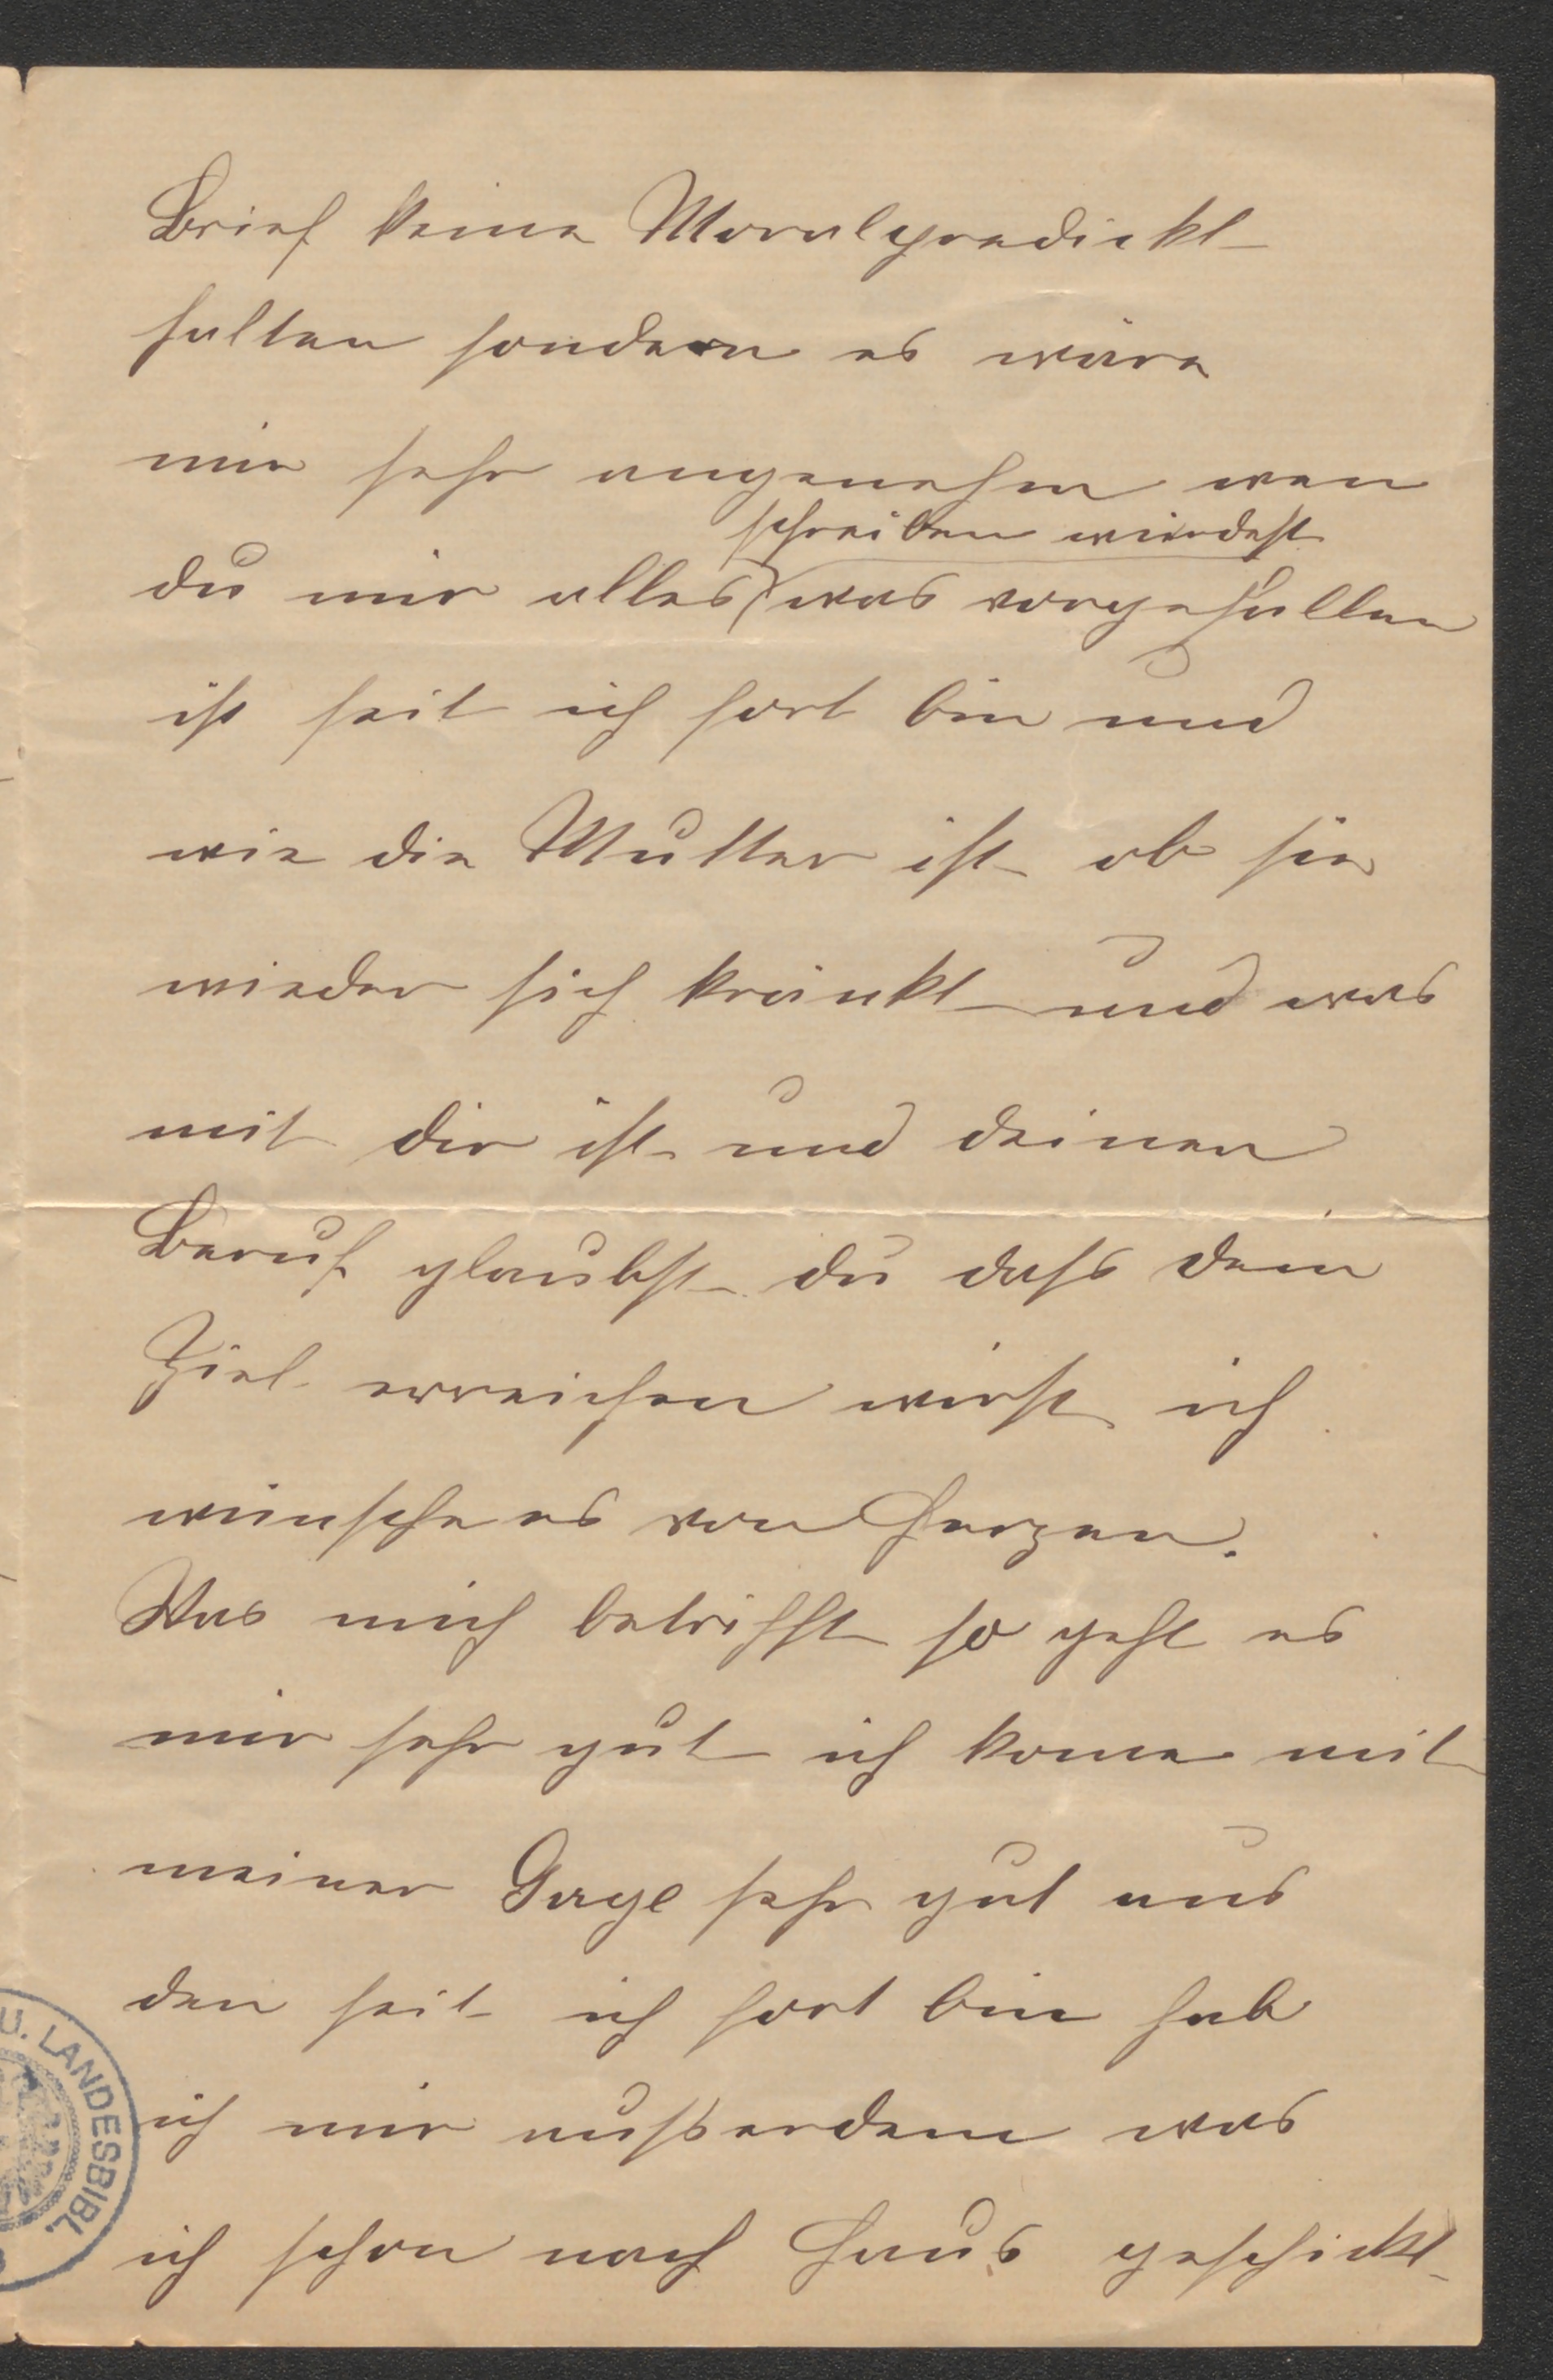 Brief keine Moralpredickt
halten sondern es wäre
mir sehr angenehm wen
schreiben würdest
du mir alles was vorgefallen
ist seit ich fort bin und
wie die Mutter ist ob sie
wieder sich kränkt und was
mit dir ist und deinen
Beruf glaubst du dass dein
Ziel erreichen wirst ich
wünsche es von Herzen.
Was mich betrifft so geht es
mir sehr gut ich kome mit
meiner Gage sehr gut aus
den seit ich fort bin hab
ich mir ausserdem was
ich schon nach Haus geschickt
U. LANDESBIBL.